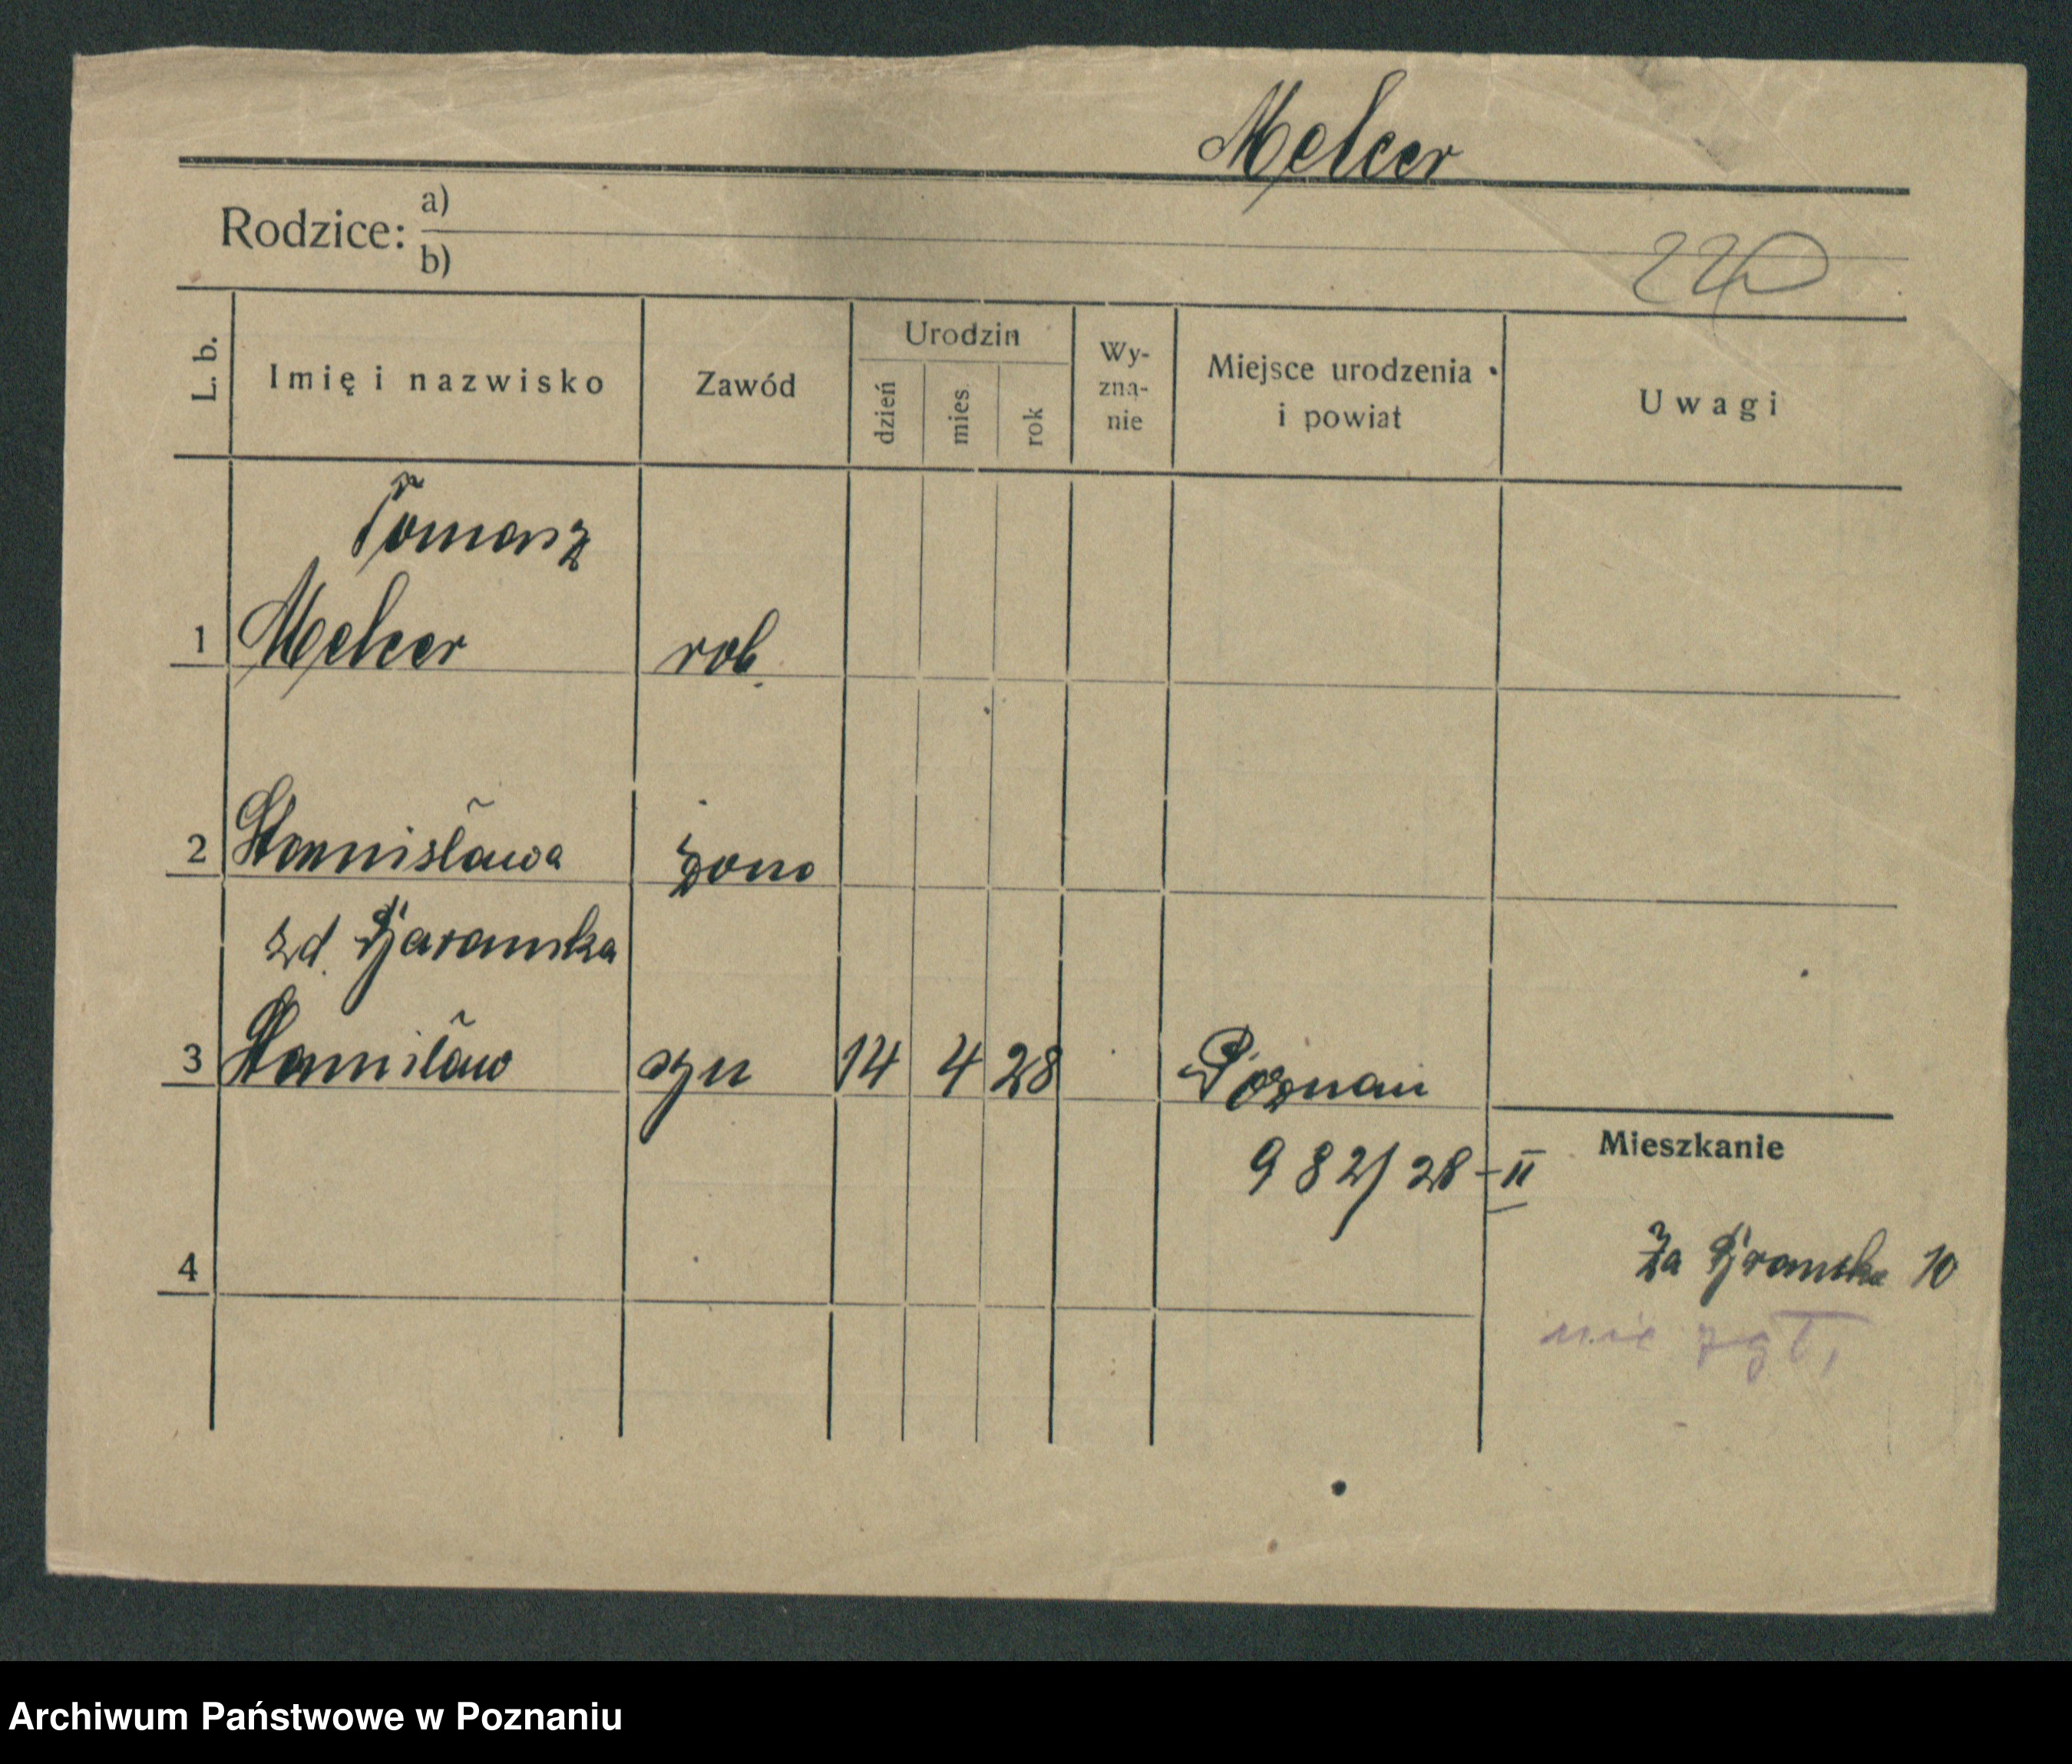 Melcer
Rodzice: a)
b)
220
L. b.
Imię i nazwisko
Zawód
Urodzin
dzień
mies.
rok
Wy-
zna-
nie
Miejsce urodzenia
i powiat
Uwagi
Tomasz
1 Melcer rob.
2 Stanisława żona
zd. Garanska
3 Stanisław syn 14 4 28 Poznań
982/28-II
Mieszkanie
4
Za Gramska 10
nie zgł.
Archiwum Państwowe w Poznaniu